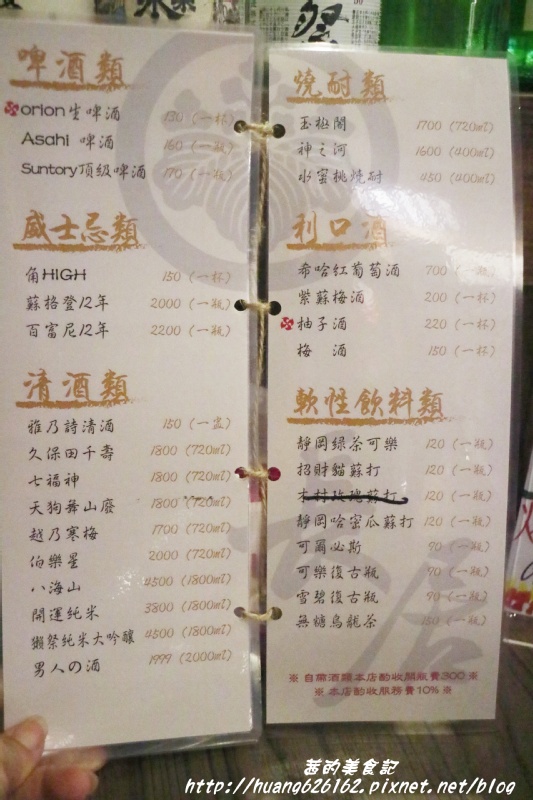 啤酒類
orion生啤酒 130 (一杯)
Asahi 啤酒 160 (一瓶)
Suntory頂級啤酒 170 (一瓶)
威士忌類
角HIGH 150 (一杯)
蘇格登12年 2000 (一瓶)
百富尼12年 2200 (一瓶)
清酒類
雅乃詩清酒 150 (一盅)
久保田千壽 1800 (720ml)
七福神 1800 (720ml)
天狗舞山廢 1800 (720ml)
越乃寒梅 1700 (720ml)
伯樂星 2000 (720ml)
八海山 4500 (1800ml)
開運純米 3800 (1800ml)
獺祭純米大吟釀 4500 (1800ml)
男人の酒 1999 (2000ml)
燒酎類
玉極閣 1700 (720ml)
神之河 1600 (400ml)
水蜜桃燒酎 450 (400ml)
利口酒
希哈紅葡萄酒 700 (一瓶)
紫蘇梅酒 200 (一杯)
柚子酒 220 (一杯)
梅 酒 150 (一杯)
軟性飲料類
靜岡綠茶可樂 120 (一瓶)
招財貓蘇打 120 (一瓶)
木村玫瑰蘇打 120 (一瓶)
靜岡哈密瓜蘇打 120 (一瓶)
可爾必斯 90 (一瓶)
可樂復古瓶 90 (一瓶)
雪碧復古瓶 90 (一瓶)
無糖烏龍茶 150 (一瓶)
※ 自開酒類本店酌收開瓶費300 ※
※ 本店酌收服務費10% ※
茜的美食記
http://huang626162.pixnet.net/blog